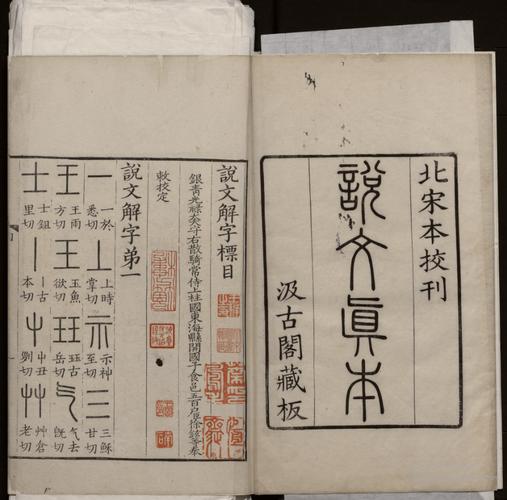 北宋本挍刊
說文眞本
汲古閣藏板
說文解字標目
銀青光祿大夫守右散騎常侍上柱國東海縣開國子食邑五百戶臣徐鉉等奉
敕挍定
說文解字弟一
一 一於悉切 丄 上時掌切 示 示神至切 三 三穌甘切
王 王雨方切 王 玉魚欲切 玨 玨古岳切 气 气去旣切
士 士鉏里切 丨 丨古本切 屮 屮丑列切 艸 艸倉老切